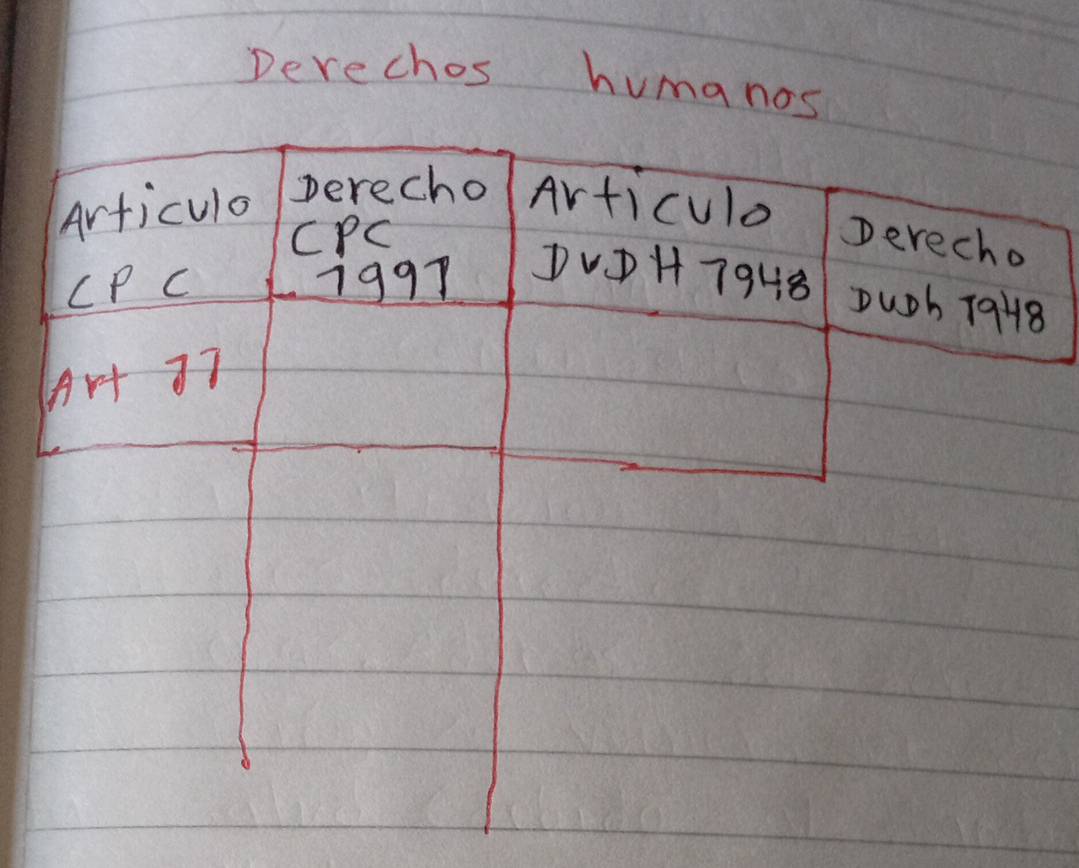 Derechos humanos
Articulo
CPC
Derecho
CPC
1991
Articulo
DUDH 1948
Derecho
DUDh 1948
Art 11